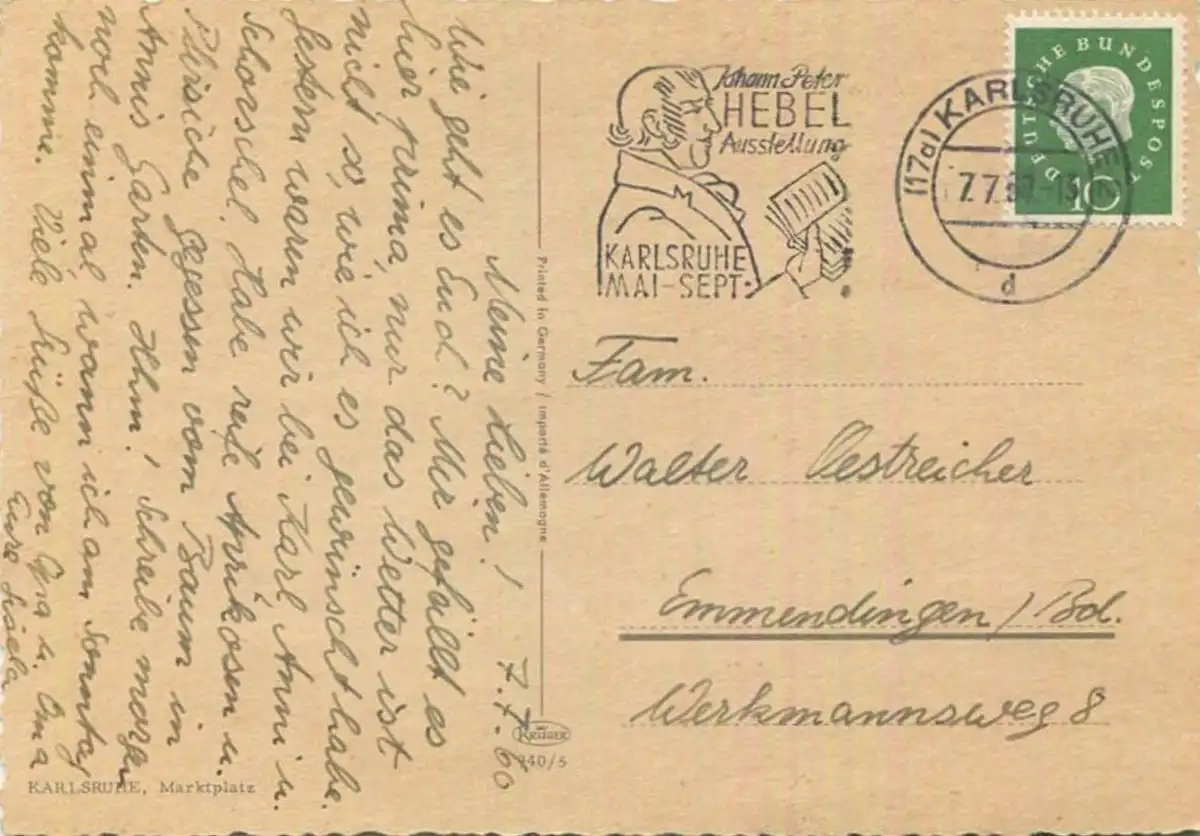 7.7.60
Meine Lieben!
Wie geht es Euch? Mir gefällt es
hier prima, nur das Wetter ist
nicht so, wie ich es gewünscht habe.
Gestern waren wir bei Karl, Anni u.
Schorschel. Habe reife Aprikosen u.
Pfirsiche gegessen vom Baum im
Annis Garten. Hhm! Schreibe morgen
noch einmal, wann ich am Sonntag
komme. Viele Grüße von Opa u. Oma
Eure Gisela
Printed in Germany / Importé d'Allemagne
KRÜGER
940/5
KARLSRUHE, Marktplatz
Johann Peter
HEBEL
Ausstellung
KARLSRUHE
MAI-SEPT.
(17a) KARLSRUHE 2
7.7.60-13
d
DEUTSCHE BUNDESPOST
10
Fam.
Walter Oestreicher
Emmendingen / Bd.
Werkmannsweg 8